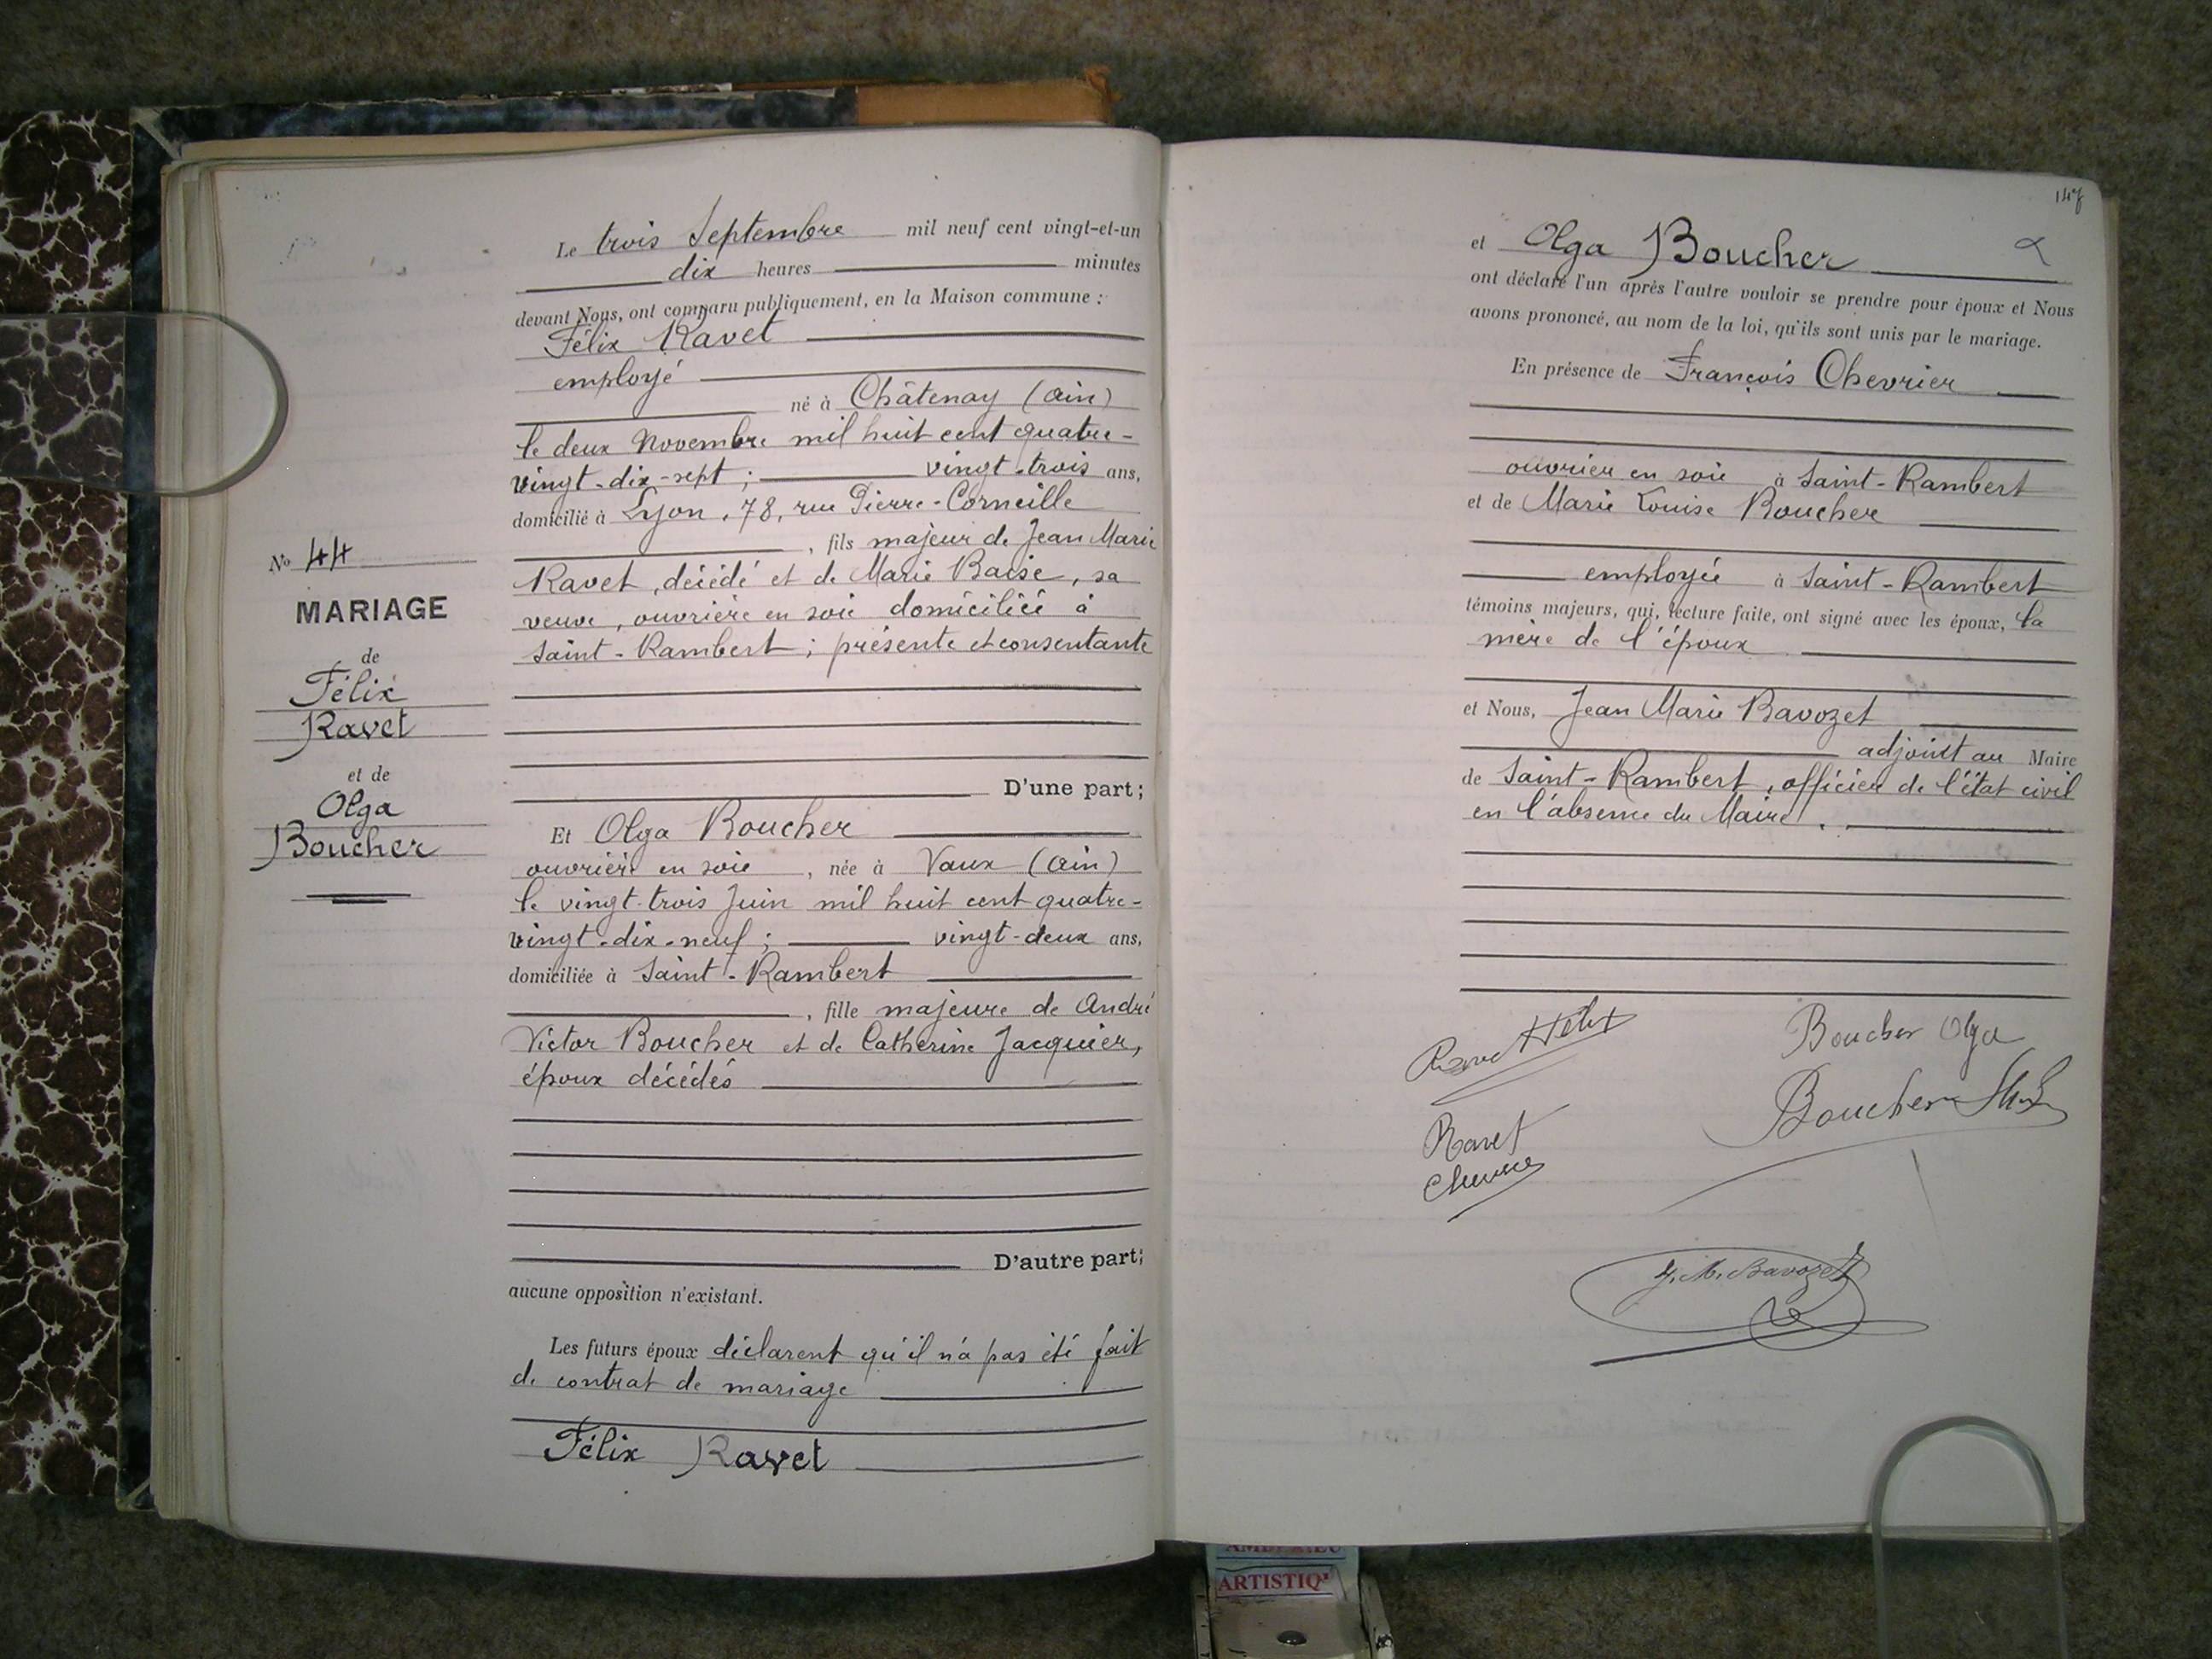 No 44
MARIAGE
de
Félix
Ravet
et de
Olga
Boucher
Le trois Septembre mil neuf cent vingt-et-un
dix heures minutes
devant Nous, ont comparu publiquement, en la Maison commune :
Félix Ravet
employé
né à Châtenay (Ain)
le deux Novembre mil huit cent quatre-
vingt-dix-sept ; vingt-trois ans,
domicilié à Lyon, 78, rue Pierre-Corneille
, fils majeur de Jean Marie
Ravet, décédé et de Marie Baise, sa
veuve, ouvrière en soie domiciliée à
Saint-Rambert ; présente et consentante
D'une part ;
Et Olga Boucher
ouvrière en soie , née à Vaux (Ain)
le vingt-trois Juin mil huit cent quatre-
vingt-dix-neuf ; vingt-deux ans,
domiciliée à Saint-Rambert
, fille majeure de André
Victor Boucher et de Catherine Jacquier,
époux décédés
D'autre part ;
aucune opposition n'existant.
Les futurs époux déclarent qu'il n'a pas été fait
de contrat de mariage
Félix Ravet
147
et Olga Boucher
ont déclaré l'un après l'autre vouloir se prendre pour époux et Nous
avons prononcé, au nom de la loi, qu'ils sont unis par le mariage.
En présence de François Chevrier
ouvrier en soie à Saint-Rambert
et de Marie Louise Boucher
employée à Saint-Rambert
témoins majeurs, qui, lecture faite, ont signé avec les époux, la
mère de l'époux
et Nous, Jean Marie Bavozet
adjoint au Maire
de Saint-Rambert, officier de l'état civil
en l'absence du Maire.
Ravet Félix
Boucher Olga
Boucher
Ravet
J. M. Bavozet
ARTISTIQ